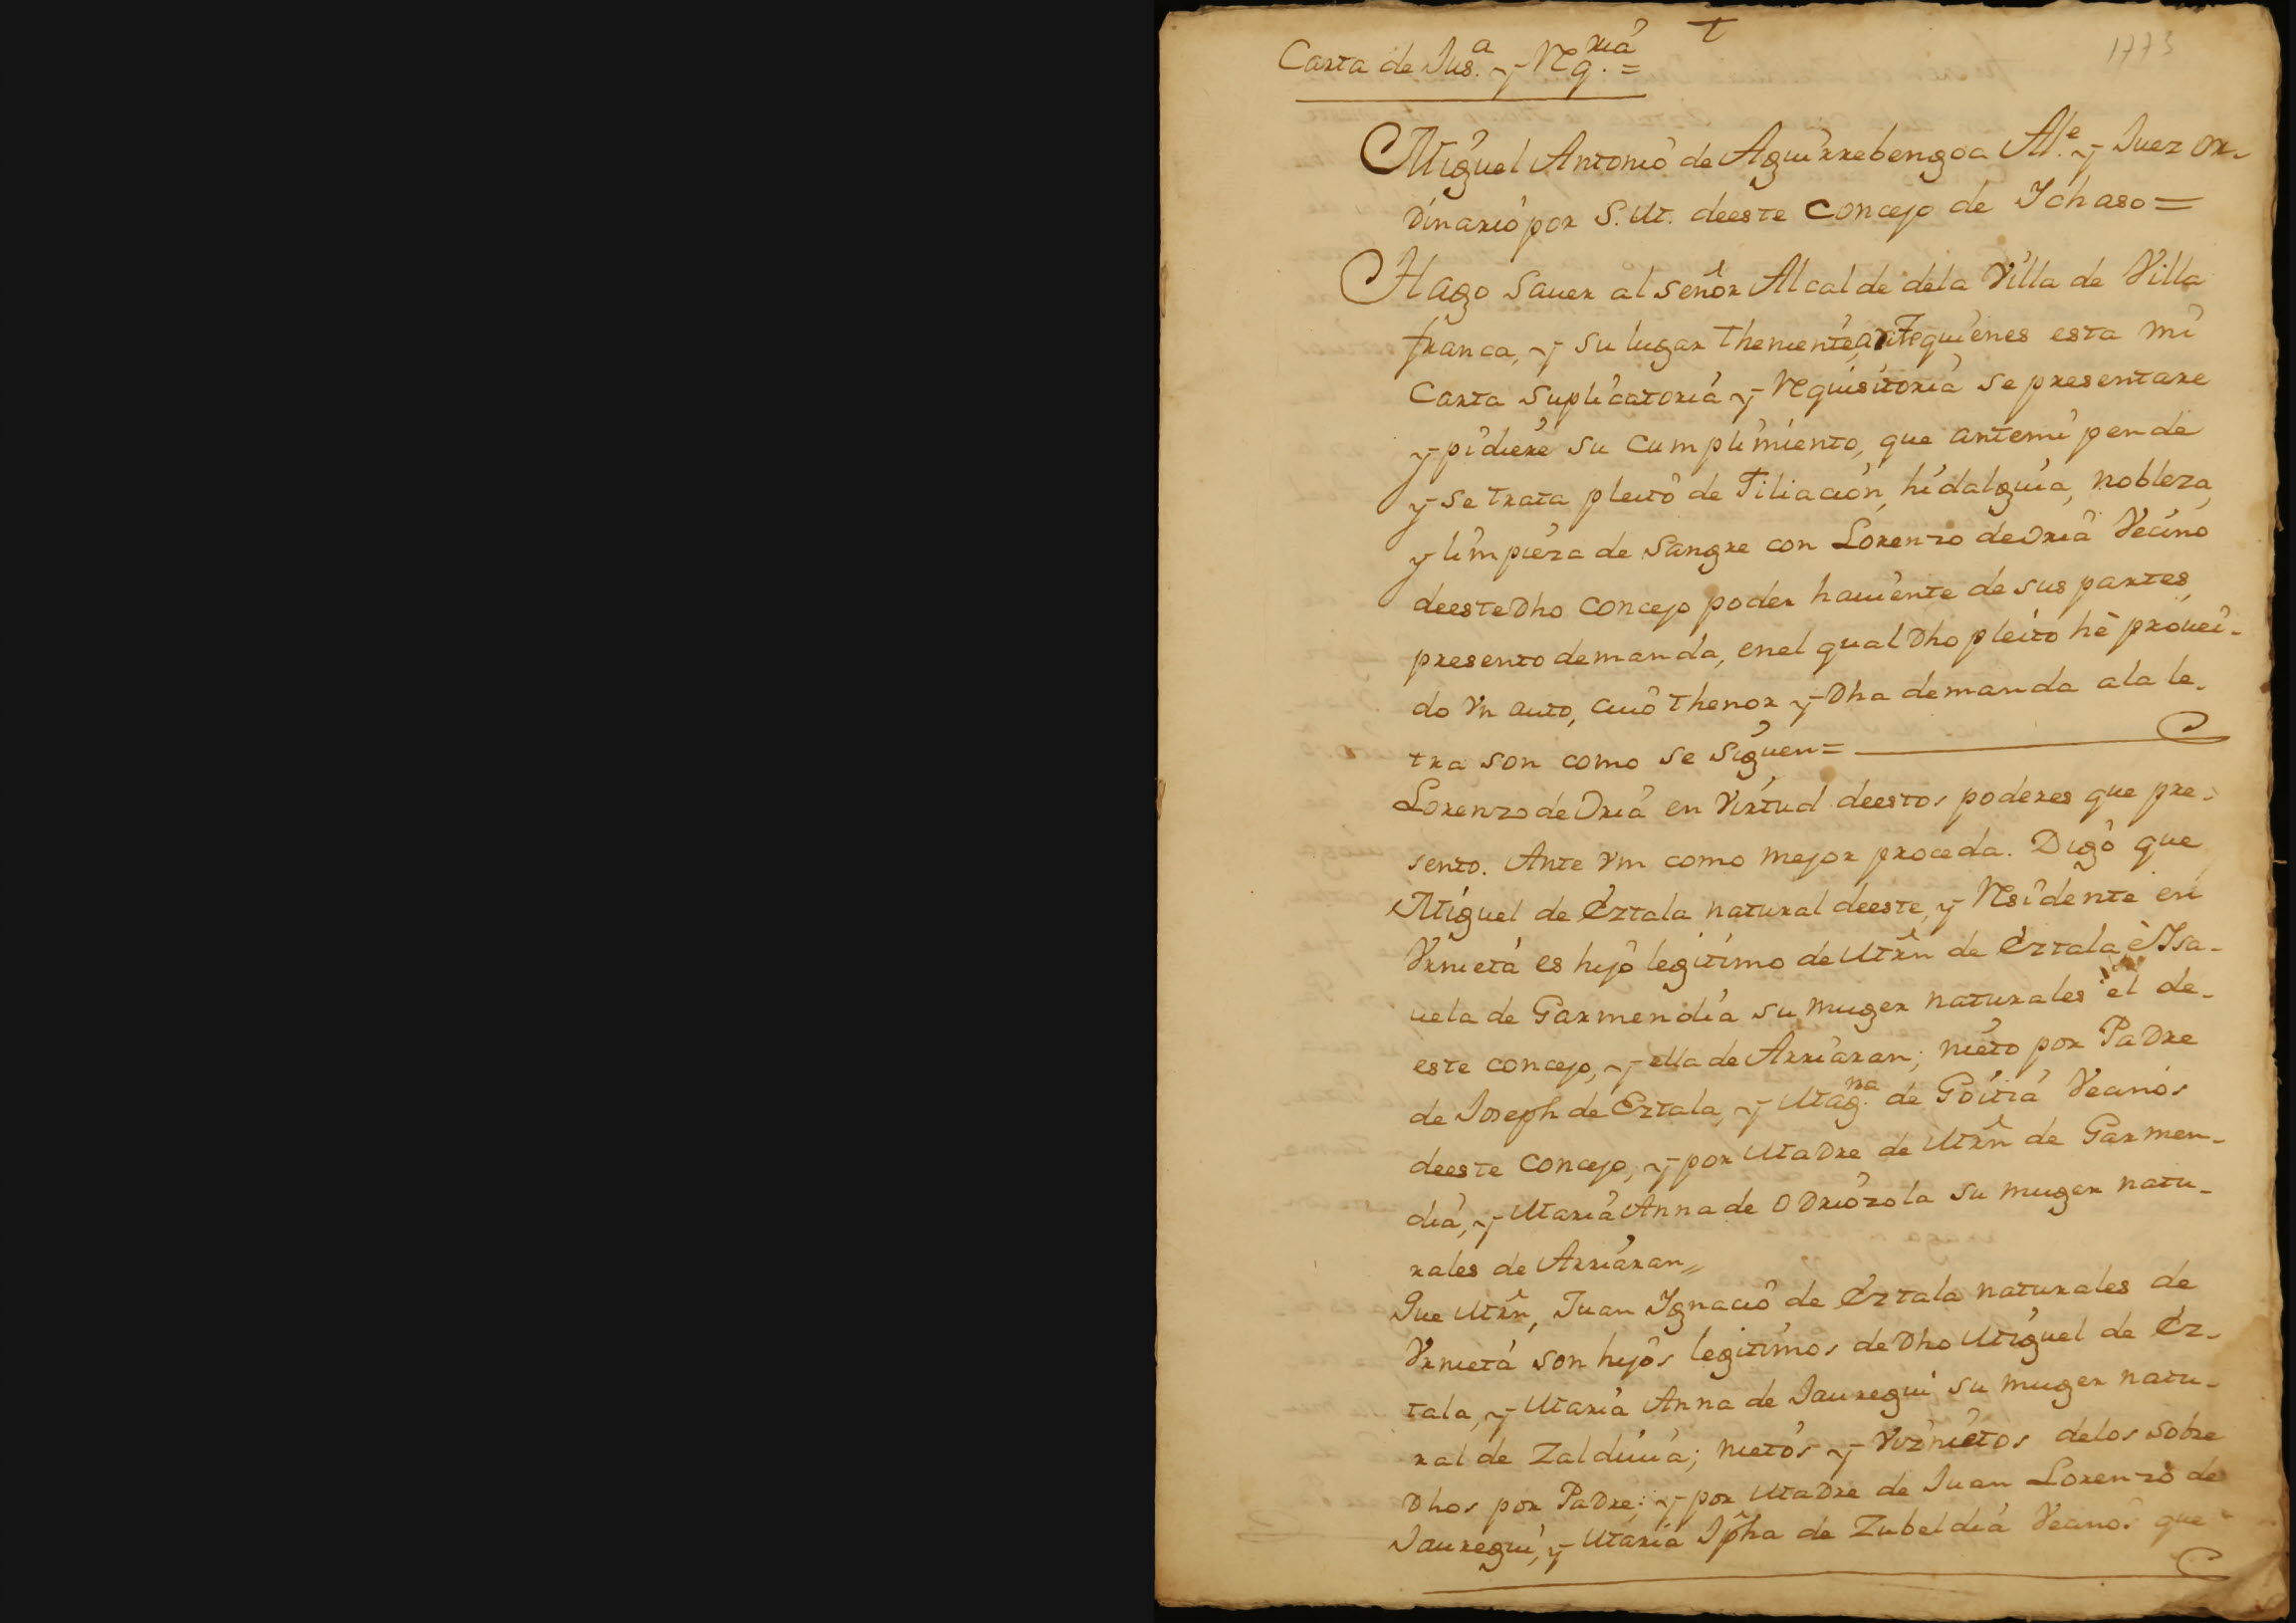 t
1773
Carta de Jus.ª y Rq.ria =
Miguel Antonio de Aguirrebengoa Al.e y Juez or-
dinario por S. M. deeste Concejo de Ichaso =
Hago Sauer al señor Alcalde dela Villa de Villa
franca, y su lugar Theniente, ante quienes esta mi
Carta Suplicatoria y Requisitoria se presentare
y pidiere su Cumplimiento, que antemi pende
y se trata pleito de Filiacion, hidalguia, nobleza,
y limpieza de Sangre con Lorenzo de Oria Vecino
deeste Dho Concejo poder hauiente de sus partes,
presento demanda, enel qual Dho pleito hè prouei-
do Vn auto, cuio Thenor y Dha demanda ala le-
tra son como se siguen =
Lorenzo de Oria en Virtud deestos poderes que pre-
sento. Ante Vm como mejor proceda. Digo que
Miguel de Eztala natural deeste, y Residente en
Vrnieta es hijo legitimo de Mrñ de Eztala, è Isa-
uela de Garmendia su muger naturales el de-
este concejo, y ella de Arriaran; nieto por Padre
de Joseph de Eztala, y Mag.na de Goitia Vecinos
deeste Concejo, y por Madre de Mrñ de Garmen-
dia, y Maria Anna de Odriozola su muger natu-
rales de Arriaran,,
Que Mrñ, Juan Ignacio de Eztala naturales de
Vrnieta son hijos legitimos de Dho Miguel de Ez-
tala, y Maria Anna de Jauregui su muger natu-
ral de Zaldiuia; nietos y Viznietos delos sobre
Dhos por Padre; y por Madre de Juan Lorenzo de
Jauregui, y Maria Jpha de Zubeldia Vecinos que